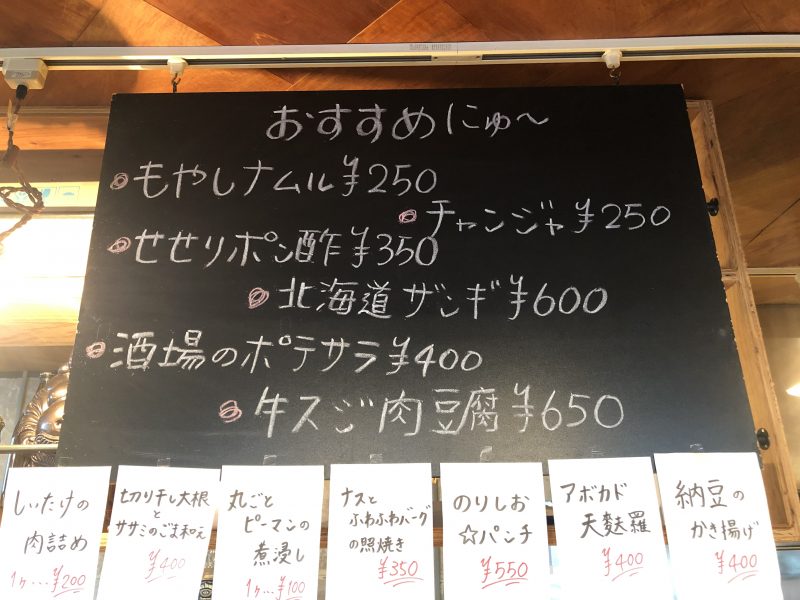 おすすめにゅ〜
もやしナムル¥250
チャンジャ¥250
せせりポン酢¥350
北海道ザンギ¥600
酒場のポテサラ¥400
牛スジ肉豆腐¥650
しいたけの
肉詰め
1ヶ…¥200
切り干し大根
と
ササミのごま和え
¥400
丸ごと
ピーマンの
煮浸し
1ヶ…¥100
ナスと
ふわふわバーグ
の照焼き
¥350
のりしお
☆パンチ
¥550
アボカド
天麩羅
¥400
納豆の
かき揚げ
¥400